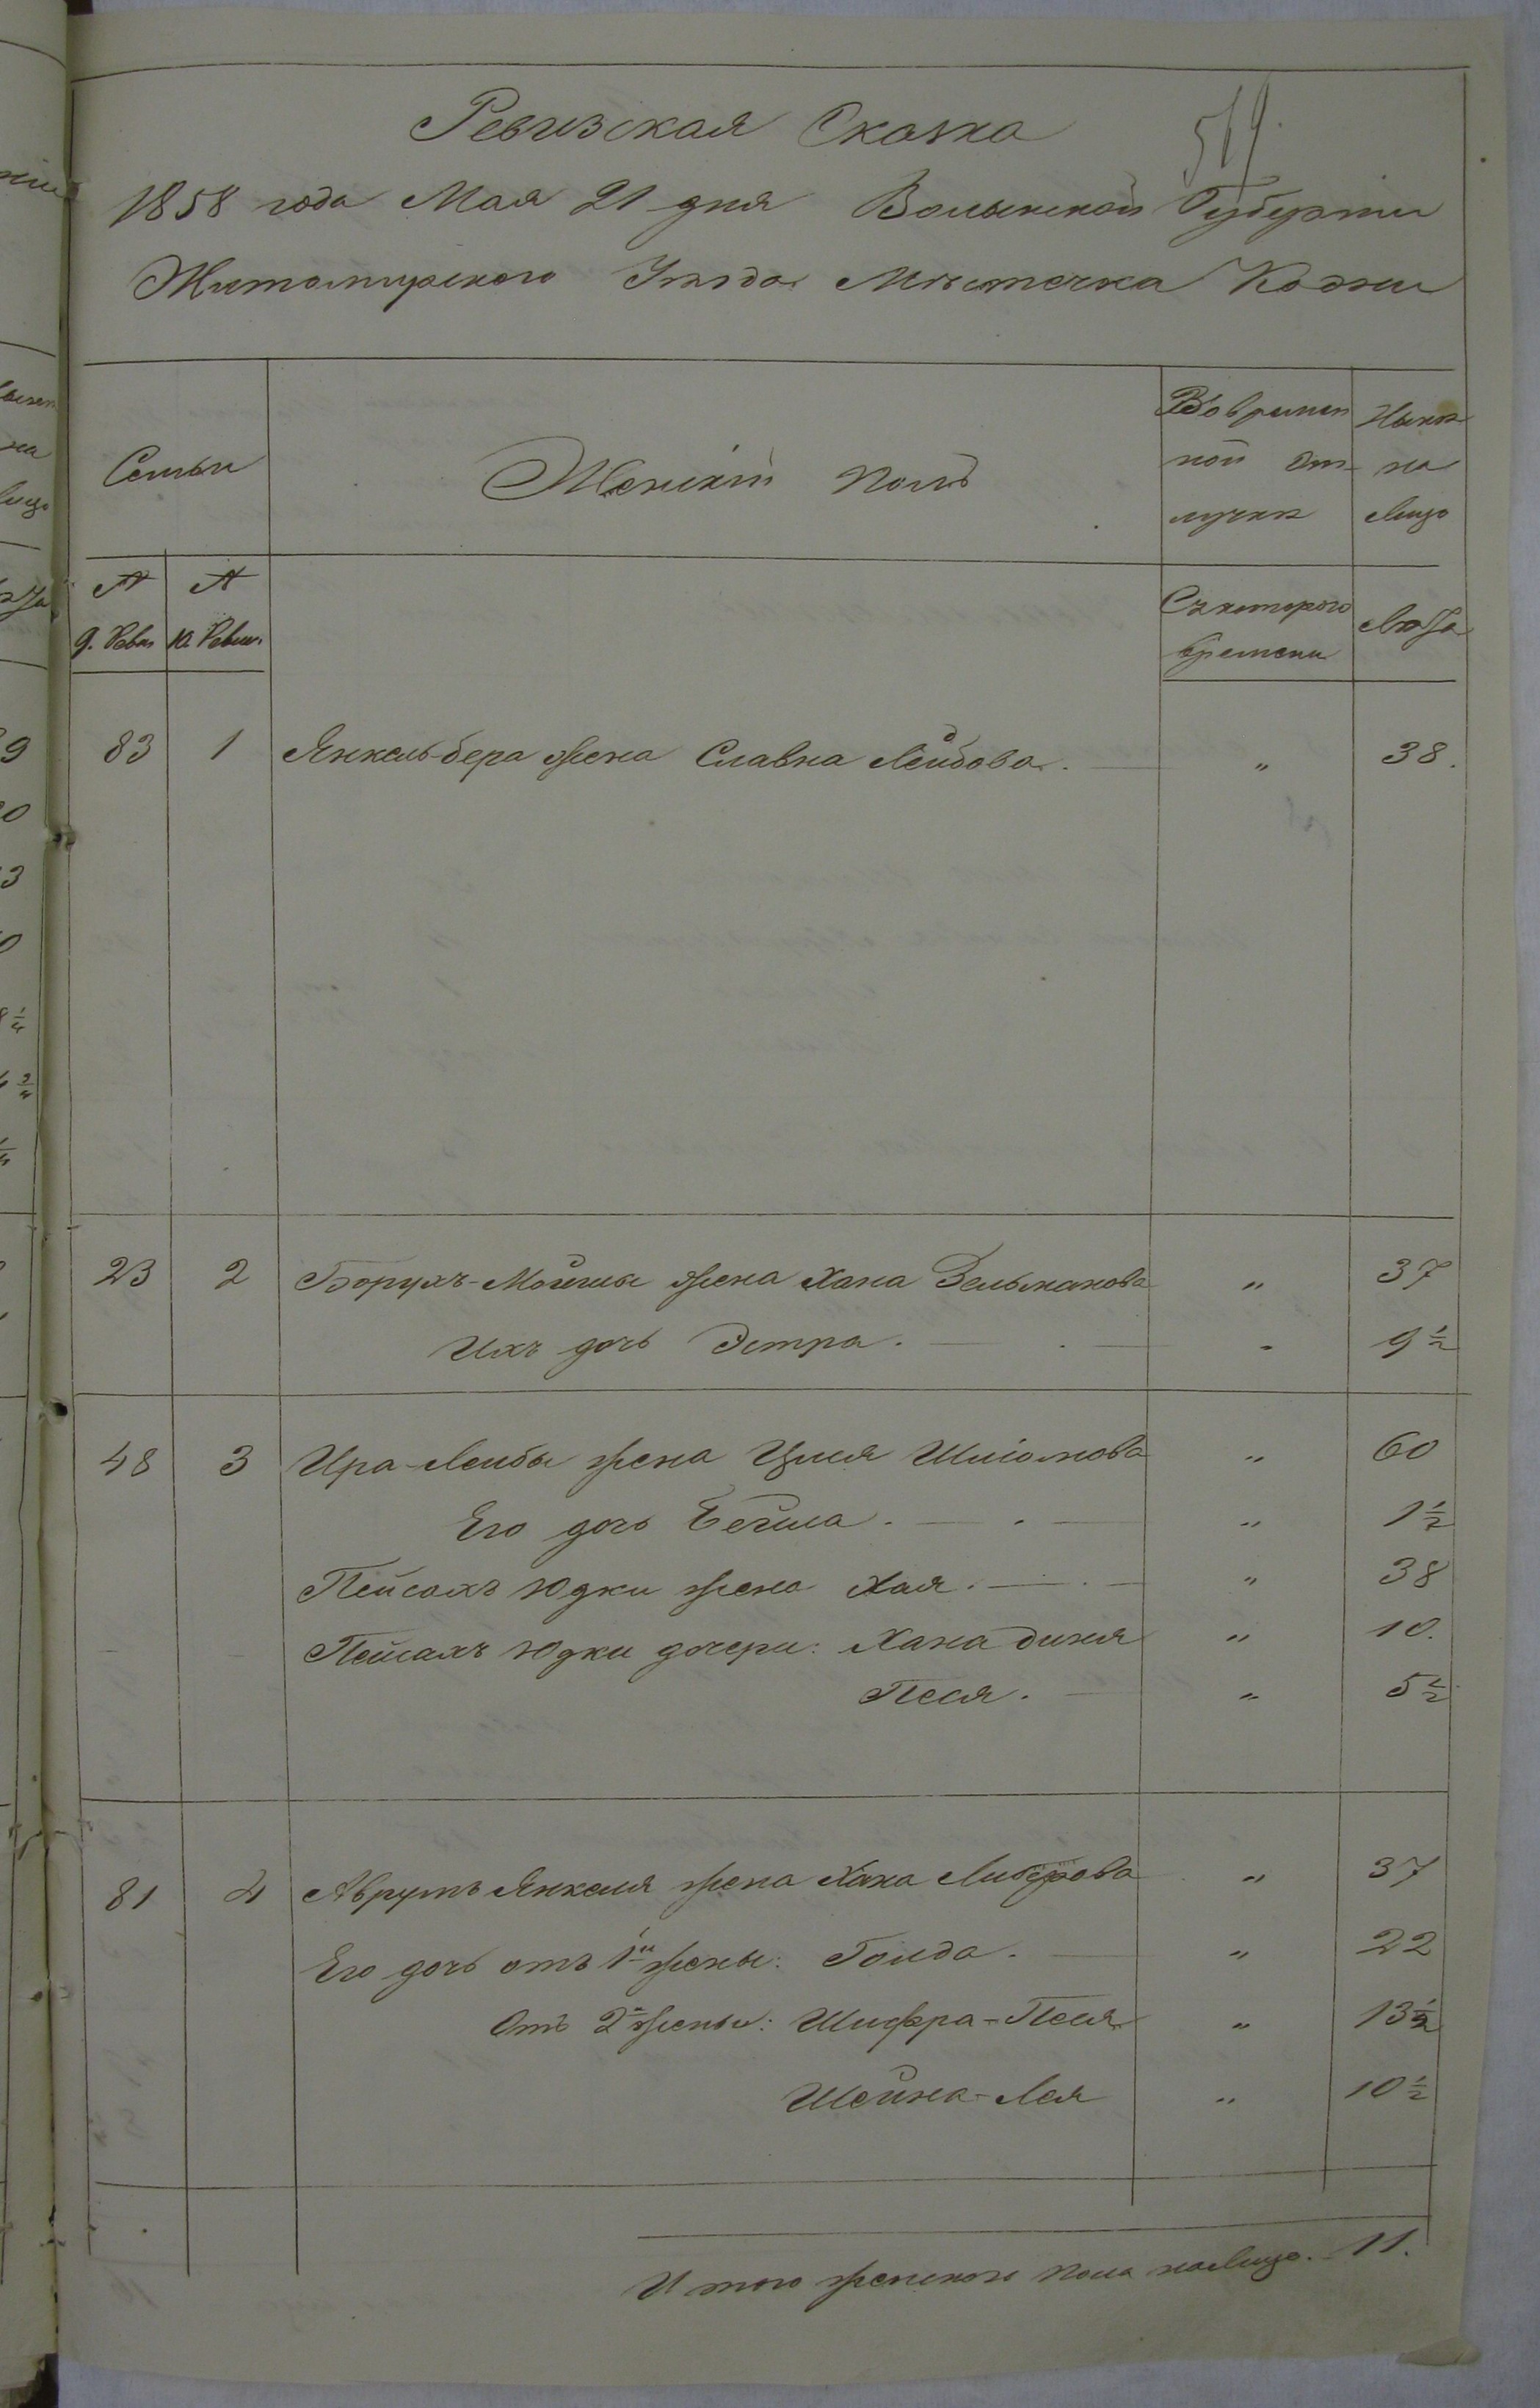 519.
Ревизская Сказка
1858 года Мая 21 дня Волынской Губернии
Житомирского Уѣзда Мѣстечка Кодни
Семьи
Женскій полъ
Во времен
ной от
лучкѣ
Нынѣ
на
лицо
№ 9. Ревиз
№ 10. Ревиз.
Съ котораго
времени
Лѣта
83 1 Янкель-бера жена Славка Лейбова. " 38.
23 2 Борухъ-Мойши жена Хана Зельманова " 37
Ихъ дочь Эстра. " 9 1/2
48 3 Лейбы жена Шліомова " 60
Его дочь Бейла. " 1 1/2
Пейсахъ Юдки жена Хая. " 38
Пейсахъ Юдки дочери: Хана диня " 10.
Песя. " 5 1/2
81 4 Аврумъ Янкеля жена Хана Либерова " 37
Его дочь отъ 1й жены: Голда. " 22
Отъ 2й жены: Шифра-Песя " 13 1/2
Шейна-Лея " 10 1/2
Итого женского пола налицо. 11.